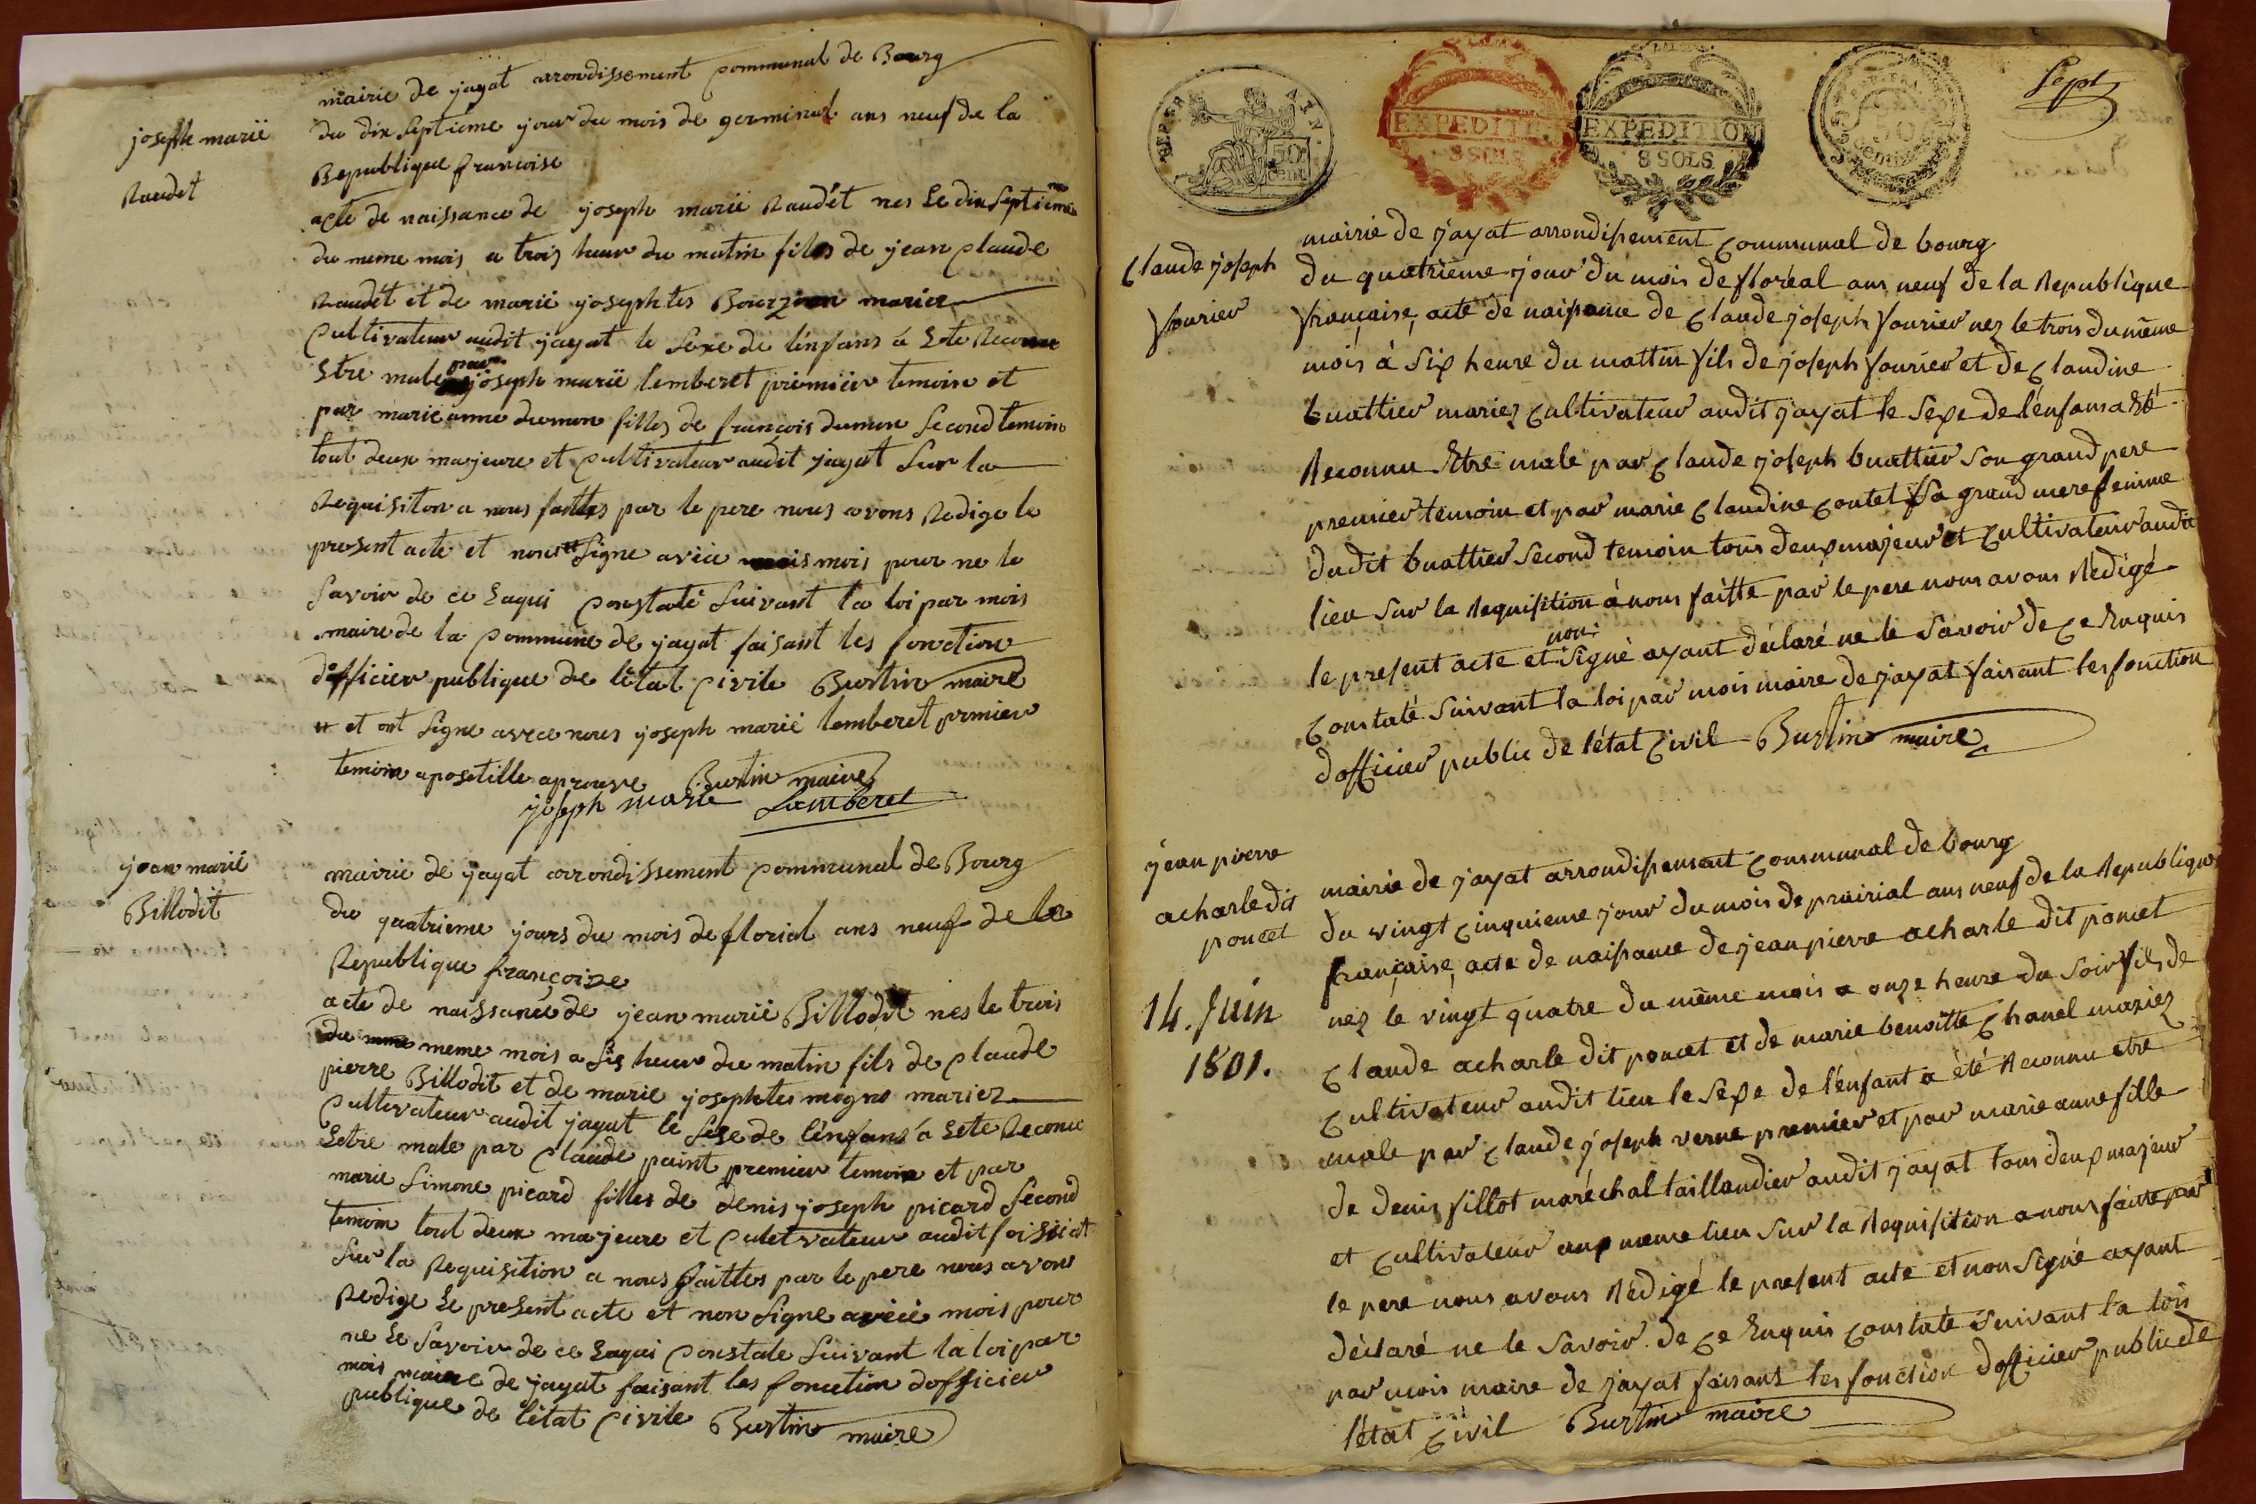 joseph marië
Raudit
mairie de jayat arrondissement communal de Bourg
du dix septieme jour du mois de germinal ans neuf de la
Republique francoise
acte de naissance de joseph marië Raudit nes Le dix septieme
du meme mois a trois heur du matin fils de jean claude
Raudit et de marië josephtes Bourgion mariez
cultivateur audit jayat le sexe de lenfans á Eté Reconu
Etre male par joseph marië lemberet premiër temoin et
par marie anne dumon filles de françois dumon second temoin
tout deux majeure et cultivateur audit jayat sur la
Requisiton a nous faittes par le pere nous avons Redige le
present acte et nons signe avëc mois pour ne le
savoir de ce Eaqui constaté suivant la loi par mois
maire de la commune de jayat faisant les fonction
dofficier publique de létat civile Burtin maire
et ont signe avec nous joseph marië lemberet prmier
temoin apostille aprouve Burtin maire
joseph marie Lamberet
jean marië
Billodit
mairie de jayat arrondissement communal de Bourg
du quatrieme jours du mois de florial ans neuf de la
Republique françoise
acte de naissance de jean marië Billodit nes le trois
du meme mois a sis heur du matin fils de claude
pierre Billodit et de marie josephtes mogne mariez
cultivateur audit jayat le sexe de lénfans á Eté Reconu
Eetre male par claude paint premier temoin et par
marie simone picard filles de denis joseph picard second
temoin tout deux majeure et cultvateur audit
sur la Requisition a nous faittes par le pere nous avons
Redige Le present acte et non signe avëc mois pour
ne Le savoir de ce Eaqui constate suivant la loi par
mois maire de jayat faisant les fonction dofficier
publique de létat civile Burtin maire
REP. FRA
50 cent.
EXPEDITION
8 SOLS
EXPEDITION
8 SOLS
50
centimes
Sept
Claude joseph
fourier
mairie de jayat arrondissement communal de bourg
du quatrième jour du mois de floréal ans neuf de la Republique
française, acte de naissance de Claude joseph fourier nez le trois du même
mois à six heure du mattin fils de joseph fourier et de Claudine
buattier mariez cultivateur audit jayat le sexe de l'énfans a Eté
Reconnu Etre male par Claude joseph buattier son grand pere
premier temoin et par marie Claudine contet sa grand mere femme
dudit buattier second temoin tous deux majeur et cultivateur audit
lieu sur la Requisition á nous faitte par le pere nous avons Rédigé
le present acte et non signé ayant déclaré ne le savoir de ce Enquis
constaté suivant la loi par mois maire de jayat faisant les fonction
dofficier public de l'état Civil Burtin maire
jean pierre
acharle dit
poncet
14. Juin
1801.
mairie de jayat arrondissement communal de bourg
du vingt cinquieme jour du mois de prairial ans neuf de la Republique
française, acte de naissance de jean pierre acharle dit poncet
nez le vingt quatre du même mois a onze heure du soir fils de
Claude acharle dit poncet et de marie benoitte Chanel mariez
cultivateur audit lieu le sexe de l'énfant a été Reconnu etre
male par Claude joseph verne premier et par marie anne fille
de denis fillot maréchal taillandier audit jayat tous deux majeur
et cultivateur aux meme lieu sur la Requisition a nous faitte par
le pere nous avons Rédigé le present acte et non signé ayant
déclaré ne le savoir de ce Enquis constaté suivant la loi
par mois maire de jayat faisant les fonction dofficier public de
l'état Civil Burtin maire